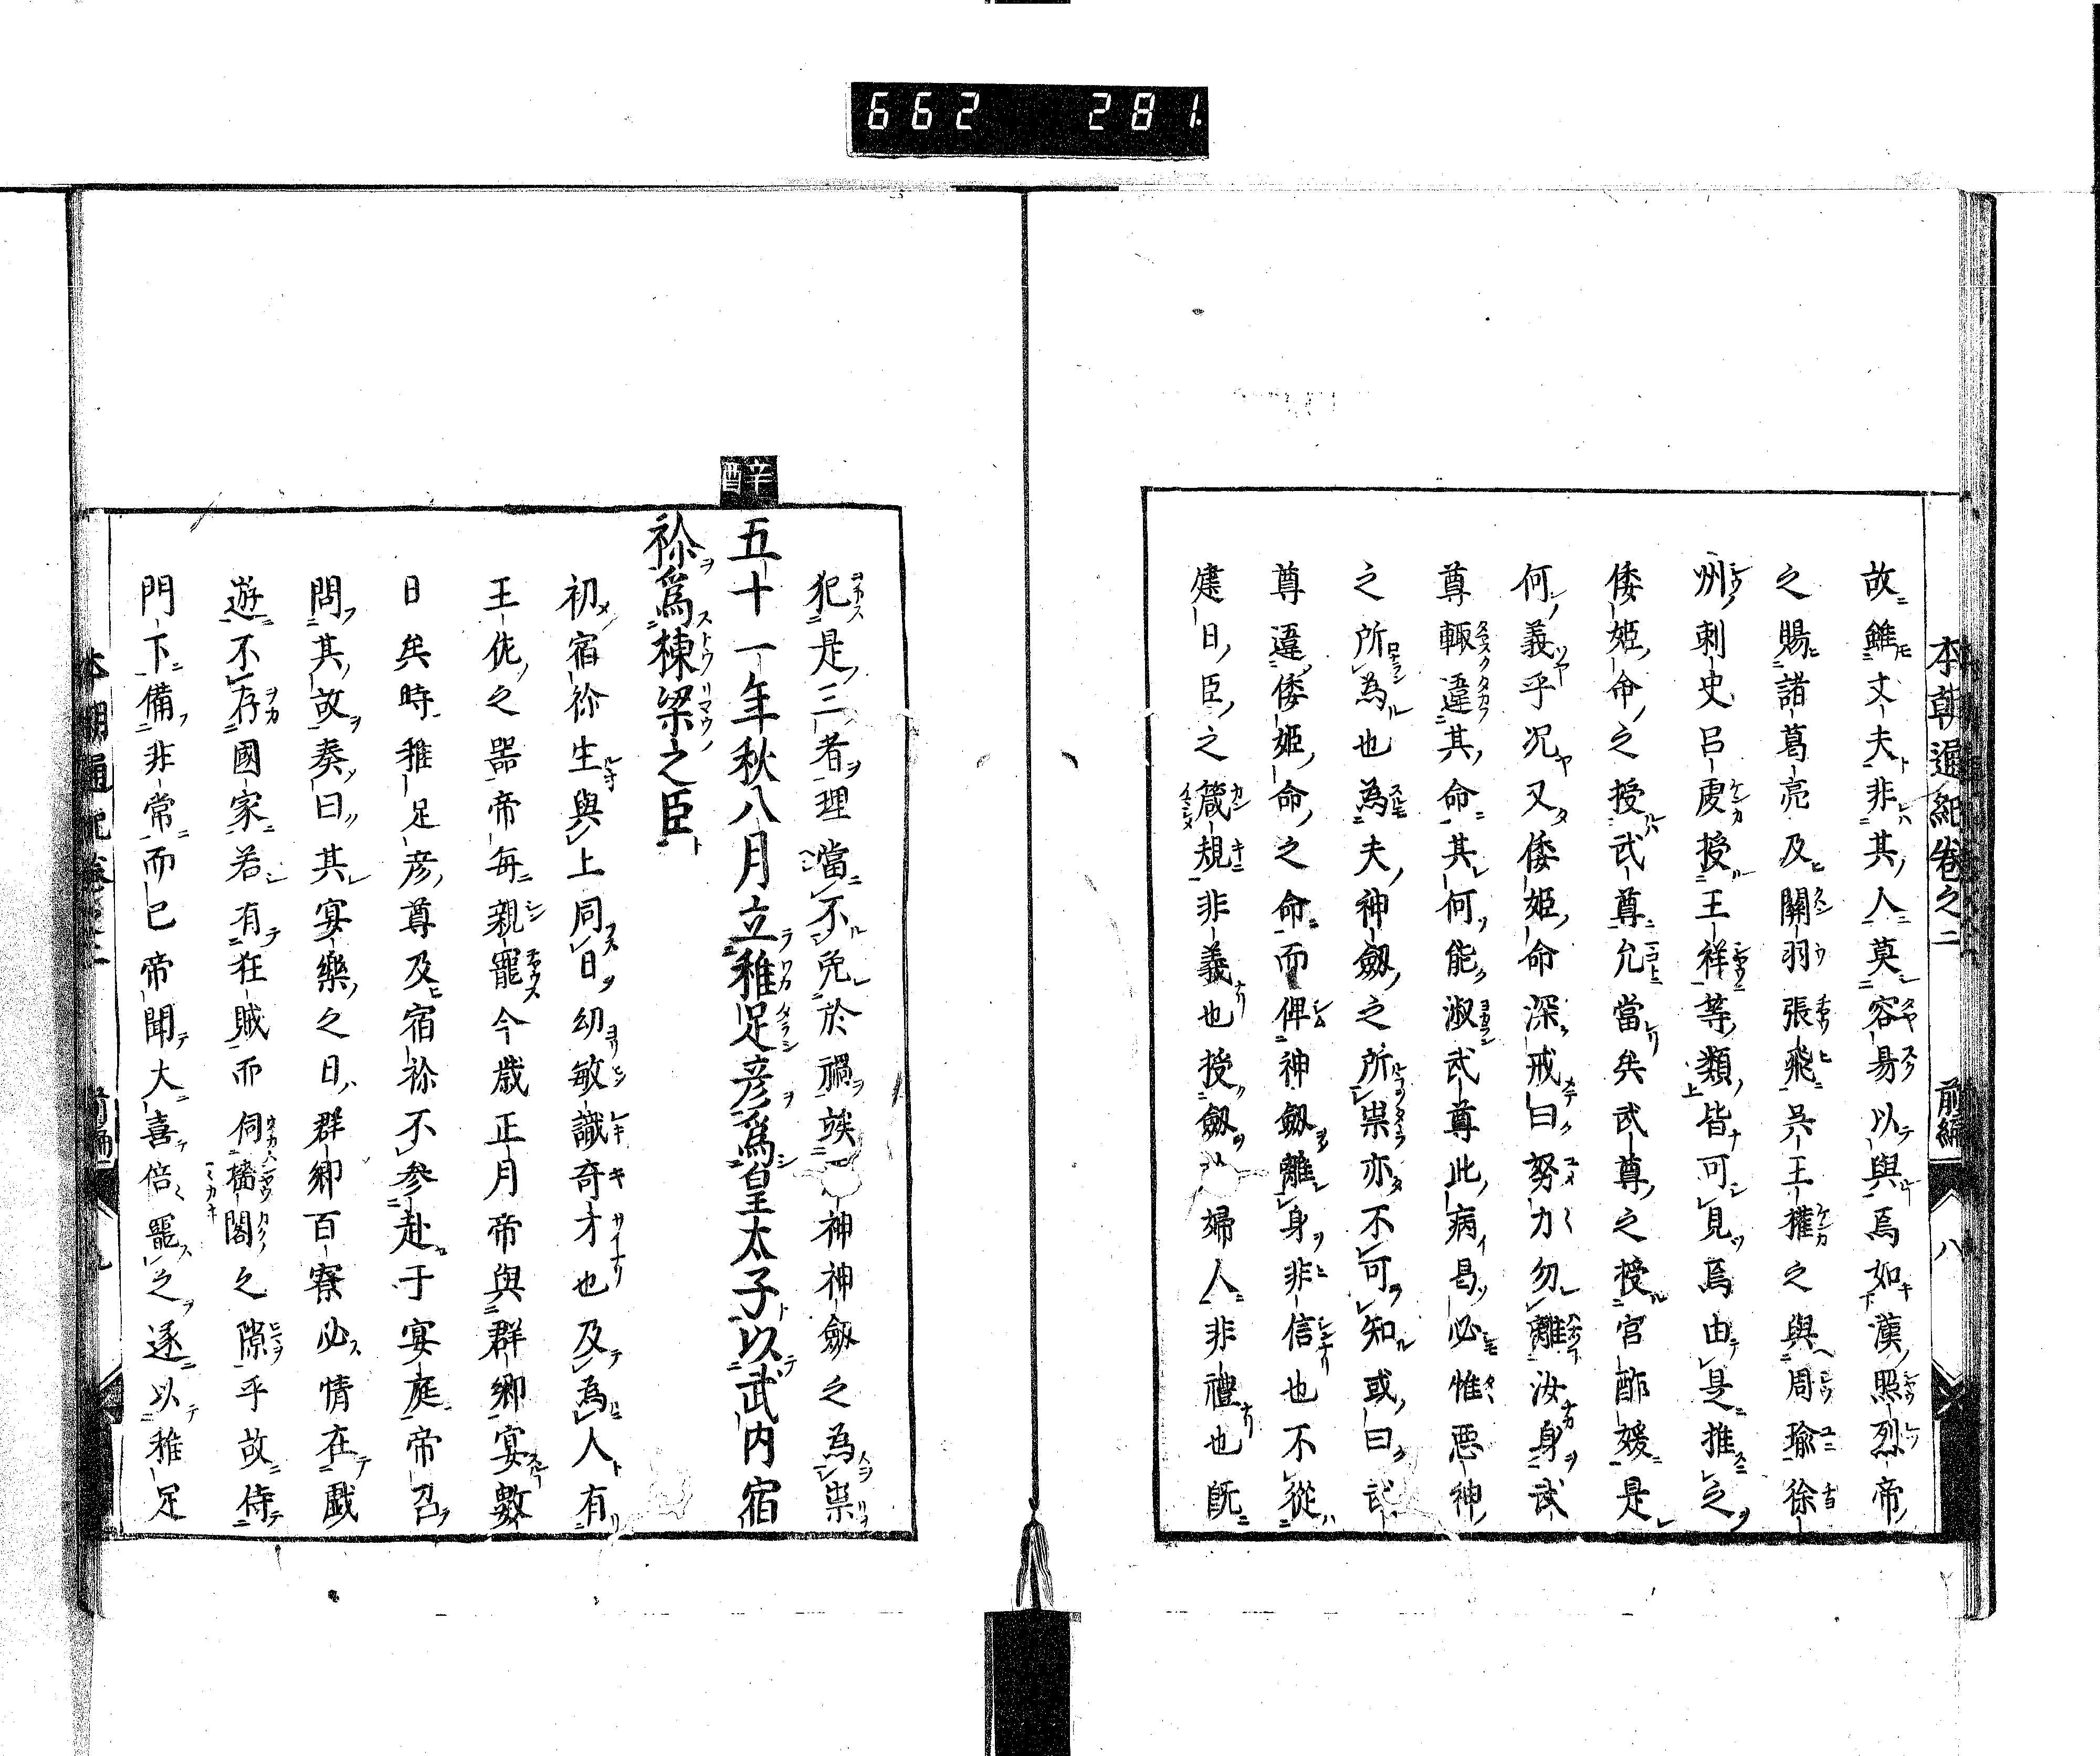 662 281
本朝通紀卷之二 前編 八
故雖丈夫非其人莫容易以與焉如漢照烈帝
之賜諸葛亮及關羽張飛呉王權之與周瑜徐
州刺史呂虔授王祥等類皆可見焉由是推之
倭姫命之授武尊允當矣武尊之授宮酢媛是
何義乎况又倭姫命深戒曰努力勿離汝身武
尊輙違其命其何能淑武尊此病曷必惟悪神
之所為也為夫神劔之所祟亦不可知或曰武
尊違倭姫命之命而俾神劔離身非信也不從
建日臣之箴規非義也授劔於婦人非禮也既
犯是三者理當不免於禍族神神劔之為祟
辛酉
五十一年秋八月立稚足彦爲皇太子以武内宿
祢爲棟梁之臣
初宿祢生與上同日幼敏識奇才也及為人有
王佐之噐帝毎親寵今歲正月帝與群卿宴數
日矣時稚足彦尊及宿祢不參赴于宴庭帝召
問其故奏曰其宴樂之日群卿百寮必情在戯
遊不存國家若有狂賊而伺墻閤之隙乎故侍
門下備非常而已帝聞大喜倍寵之遂以稚足
本朝通紀卷之二 前編 九